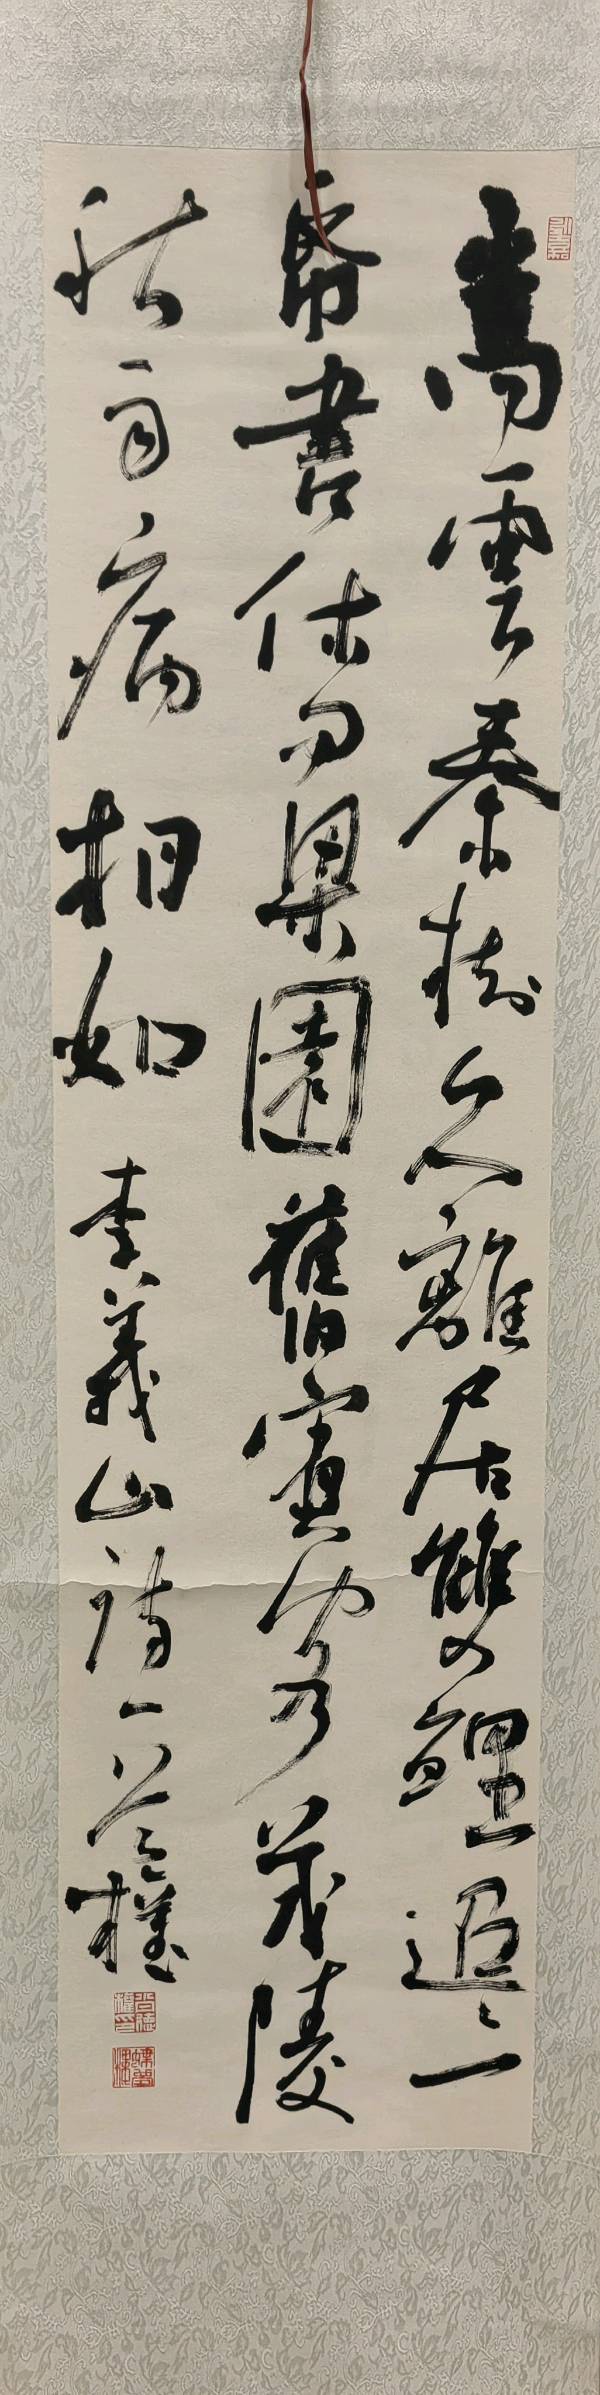 嵩雲秦樹久離居雙鯉迢迢一
帋書休問梁園舊賓客茂陵
秋雨病相如 李義山詩一 權